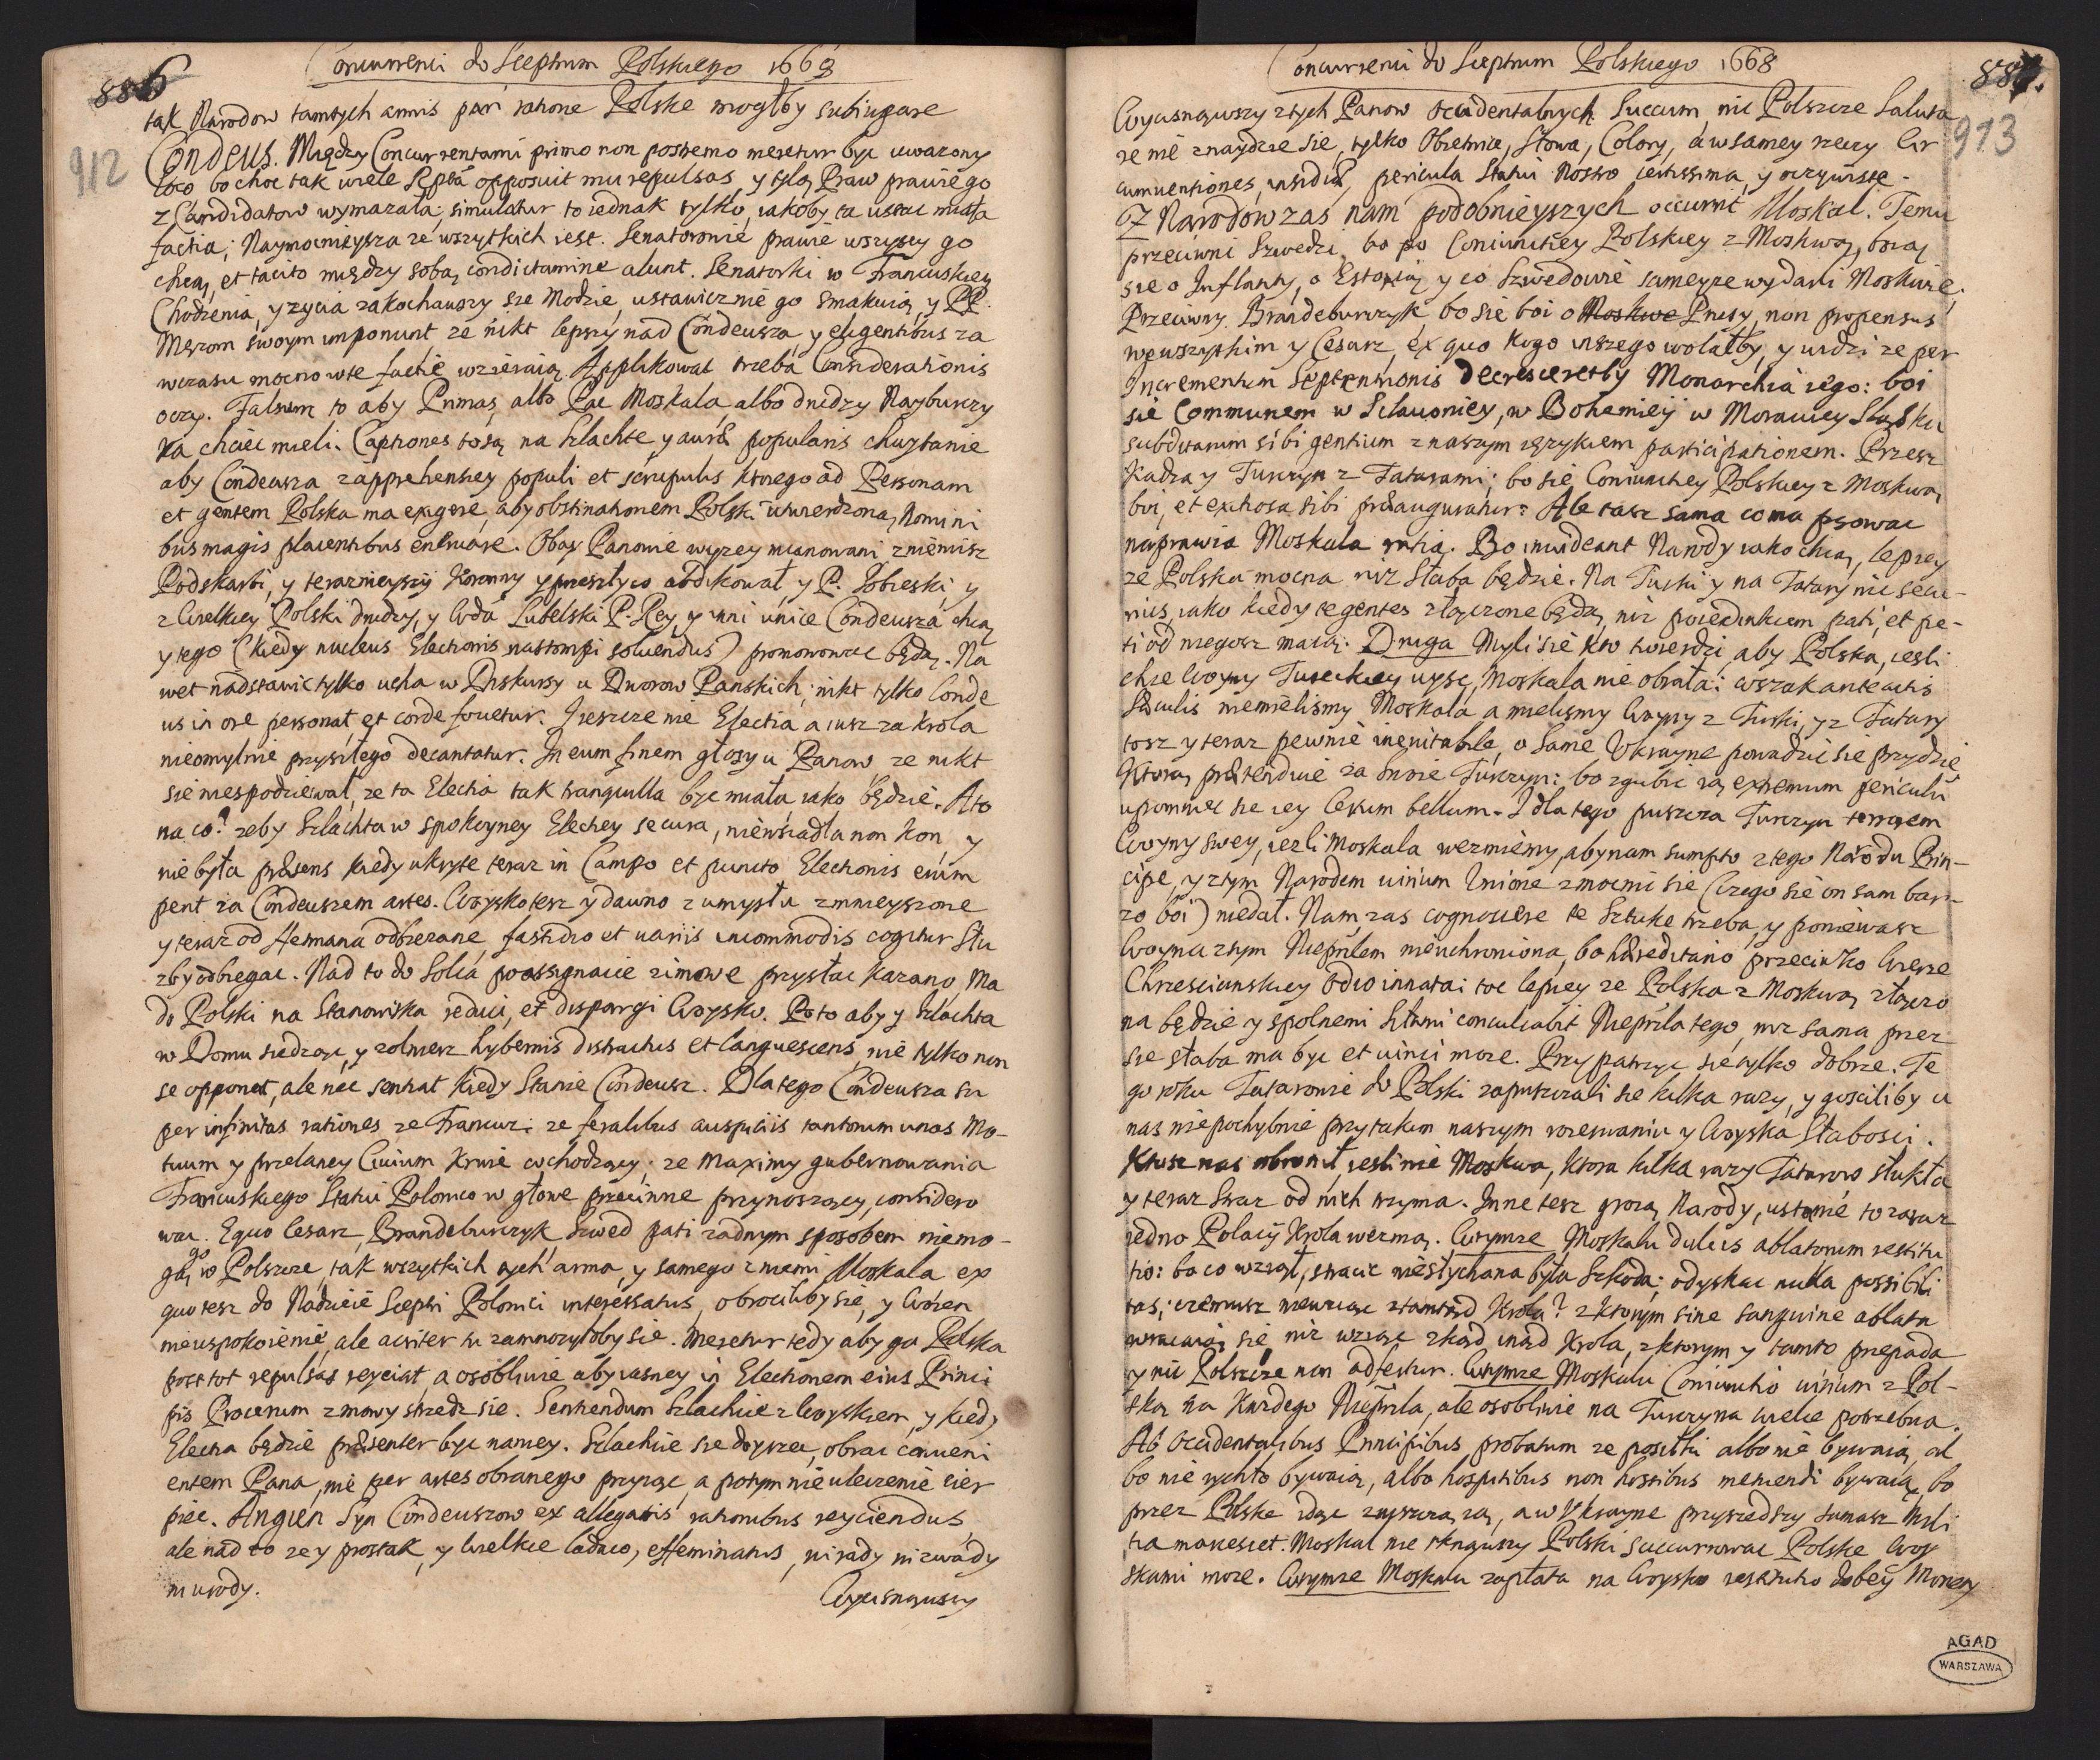 886
Concurrenci do Sceptrum Polskiego 1668
912
tak Narodow tamtych armis pari ratione Polskę mogłby subiugare
Condeus. Między Concurrentami primo non postremo meretur byc uwazony
loco bo choc tak wiele Rptā opposuit mu repulsas, y tylą Praw prawie go
z Candidatow wymazała; simulatur to iednak tylko, iakoby ta ustac miała
factia; Naymocnieysza ze wszytkich iest. Senatorowie prawie wszyscy go
chcą, et tacito między sobą condictamine alunt. Senatorki w Francuskiey
Chodzenia, y zycia zakochawszy sie Modzie, ustawicznie go smakuią, y PP.
Męzom swoym imponunt ze nikt lepszy nad Condeusza, y eligentibus za
wczasu mocno w te factie wzieraią. Applikować trzeba Considerationis
oczy. Falsum to aby Prymas, albo Pac Moskala, albo drudzy Nayburczy
ka chciec mieli. Captiones to są na Szlachte, y auræ popularis chwytanie
aby Condeusza z apprehensiey populi et scrupulis ktorego ad Personam
et gentem Polska ma exigere, aby obstinationem Polski utwierdzoną, Nomini
bus magis placentibus eneruare. Obay Panowie wyzey mianowani z niemisz
Podskarbi, y terazniejszy Koronny y przeszły co abdikował, y P. Sobieski, y
z Wielkiey Polski drudzy, y Wda Lubelski P. Rey, y inni unice Condeusza chcą
y tego (kiedy nucleus Electionis nastompi soluendus) promowowac będą. Na
wet nadstawic tylko ucha w Diskursy u Dworow Panskich; nikt tylko Conde
us in ore personat, et corde fouetur. Jeszcze nie Electia a iusz za krola
nieomylnie przyszłego decantatur. In eum finem głosy u Panow ze nikt
sie niespodziewał, ze ta Electia tak tranquilla byc miała iako będzie. A to
na co? zeby Szlachta w spokoyney Electiey secura, niewsiadła non kon y
nie była præsens kiedy ukryte teraz in Campo et puncto Electionis erum
pent za Condeuszem artes. Woysko tesz y dawno z umysłu zmnieyszone
y teraz od Hetmana odbiezane, fastidio et uariis incommodis cogitur Słu
zby odbiegac. Nad to do Solca po assignacie zimowe przysłac kazano, Ma
do Polski na Stanowiska reduci, et dispargi Woysko. Po to aby y Szlachta
w Domu siedzący, y zolnierz hybernis distractus et languescens nie tylko non
se opponet, ale nec sentiat kiedy Stanie Condeusz. Dla tego Condeusza tu
per infinitas rationes ze Francuz: ze feralibus auspiciis tantorum unas Mo-
tuum y przelaney Ciuium krwie wchodzący; ze Maximy gubernowania
Francuskiego Statui Polonico w głowe przeciwne przynoszący, considero
wac. E quo Cesarz, Brandeburczyk Szwed pati zadnym sposobem niemo-
gą, go w Polszcze, tak wszytkich tych arma, y samego z niemi Moskala ex
quo tesz do Nadzieie Sceptri Polonici interessatus, obrociłby sie, y Wdzien
nieuspokoienie, ale acriter tu zamnozyłoby sie. Meretur tedy aby go Polska
post tot repulsas reyciat, a osobliwie aby iasney in Electionem eius Princi
pis Procerum zmowy strzedz sie. Sentiendum Szlachcie z Woyskiem, y kiedy
Electia będzie præsenter byc namey. Szlachcie sie doyrzec, obrac conueni
entem Pana, nie per artes obranego przyiąc, a potym nieuleczenie cier
piec. Angien Syn Condeuszow ex allegatis rationibus reyciendus,
ale nad to ze y prostak, y wielkie ladaco, effeminatus, ni rady ni zwady
ni urody.
Wyiasniąwszy
Concurrenci do Sceptrum Polskiego 1668
887.
913
Wyiasniąwszy z tych Panow Occidentalnych Succum, nic Polszcze Saluta
re nie znaydzie sie, tylko Obietnice, Słowa, Colory, á w samey rzeczy Cir
cumuentiones, insidiæ, pericula Statui Nostro certissima, y oczywiste.
Z Narodow zas nam podobnieyszych occurrit Moskal. Temu
przeciwni Szwedzi, bo po Coniunctiey Polskiey z Moskwą, boią
sie o Inflanty, o Estonią y co Szwedowie sameyze wydarli Moskwie.
Przeciwny Brandeburczyk, bo sie boi o Moskwe Prusy, non propensus
wewszytkim y Cesarz, ex quo kogo inszego wolałby, y widzi ze per
Incrementum Septentrionis decresceretby Monarchia iego: boi
sie Communem w Sclauoniey, w Bohemiey w Morawiey Sląsku
subditarum sibi gentium z naszym ięzykiem participationem. Przesz
kadza y Turczyn z Tatarami; bo sie Coniunctiey Polskiey z Moskwą
boi, et exitiosa sibi præauguratur: Ale tasz sama co ma psowac
naprawia Moskala ratia. Bo inuideant Narody iako chcą, lepiey
ze Polska mocna niz Słaba będzie. Na Turki y na Tatary nic secu-
rius, iako kiedy te gentes złączone będą, niz poiedinkiem pati, et pe-
ti od niegosz maią. Druga Myli sie kto twierdzi, aby Polska, iesli
chce Woyny Tureckiey uysc, Moskala nie obrała: wszak anteactis
Sæculis niemielismy Moskala a mielismy Woyny z Turki, y z Tatary
tosz y teraz pewnie ineuitabile, o same Ukraine powadzic sie przydzie
ktorą prætenduie za swoie Turczyn: bo zgubic ią extremum periculū
upomniec sie iey Certum bellum. I dla tego puszcza Turczyn terrorem
Woyny swey, iezli Moskala wezmiemy, aby nam sumpto z tego Narodu Prin-
cipe, y z tym Narodem uirium Unione zmocnic sie (Czego sie on sam bar-
zo boi) niedał. Nam zas cognoscere te Sztuke trzeba, y poniewasz
Woyna z tym Nieprzlem nieuchroniona, bo hæreditario przeciwko wierze
Chrzescianskiey odio innata; toc lepiey ze Polska z Moskwą złączo
na będzie y spolnemi siłami conculcabit Nieprzla tego, niz sama przez
sie słaba ma byc et uinci moze. Przypatrzyc sie tylko dobrze. Te
go roku Tatarowie do Polski zapuszczali sie kilka razy, y gosciliby u
nas niepochybnie przy takim naszym rozerwaniu y Woyska Słabosci.
Ktosz nas obronił, iesli nie Moskwa, ktora kilka razy Tatarow stukła
y teraz Straz od nich trzyma. Inne tesz grozą Narody, ustanie to zaraz
iedno Polacy Krola wezmą. Wtymze Moskalu dulcis ablatorum restitu
tio: bo co wziął, stracic niesłychana była Szkoda; odyskac nulla possibili
tas; czemusz niewziąc ztamtąd Krola? z ktorym sine sanguine ablata
wracaią sie, niz wziąc zkąd inąd Krola, z ktorym y tamto przepada
y nic Polszcze non adfertur. Wtymze Moskalu Coniunctio uirium z Pol-
ską na kazdego Nieprzla, ale osobliwie na Turczyna wielce potrzebna.
Ab Occidentalibus Principibus probatum ze posiłki albo nie bywaią, al
bo nie rychło bywaią, albo hospitibus non hostibus metuendi bywaią, bo
przez Polskę idąc zniszczą ią, a w Ukraine przyszedszy tamasz Mili
tia marcescet. Moskal nie tknąwszy Polski succurrowac Polskę Woy
skami moze. Wtymze Moskalu zapłata na Woysko restitutio dobrey Monety
AGAD
WARSZAWA